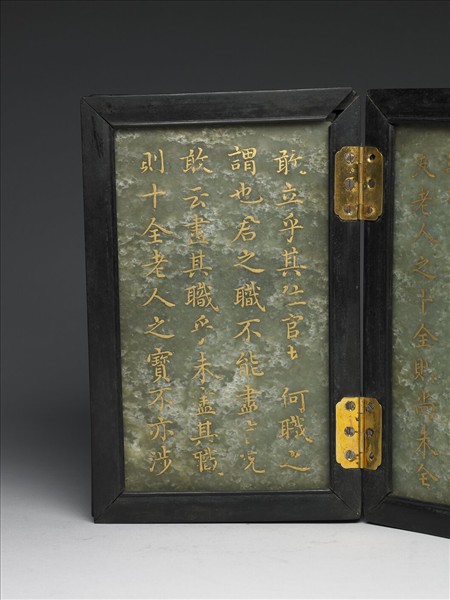 夫老人之十全則尚未全
敢立乎其官何職之
謂也君之職不能盡言況
敢云盡其職乎未盡其職
則十全老人之寶不亦涉